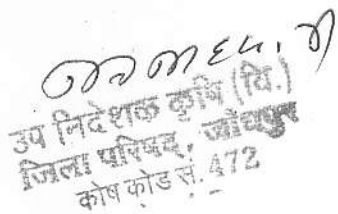 उप निदेशक कृषि (वि.)
जिला परिषद्, जोधपुर
कोष कोड सं. 472